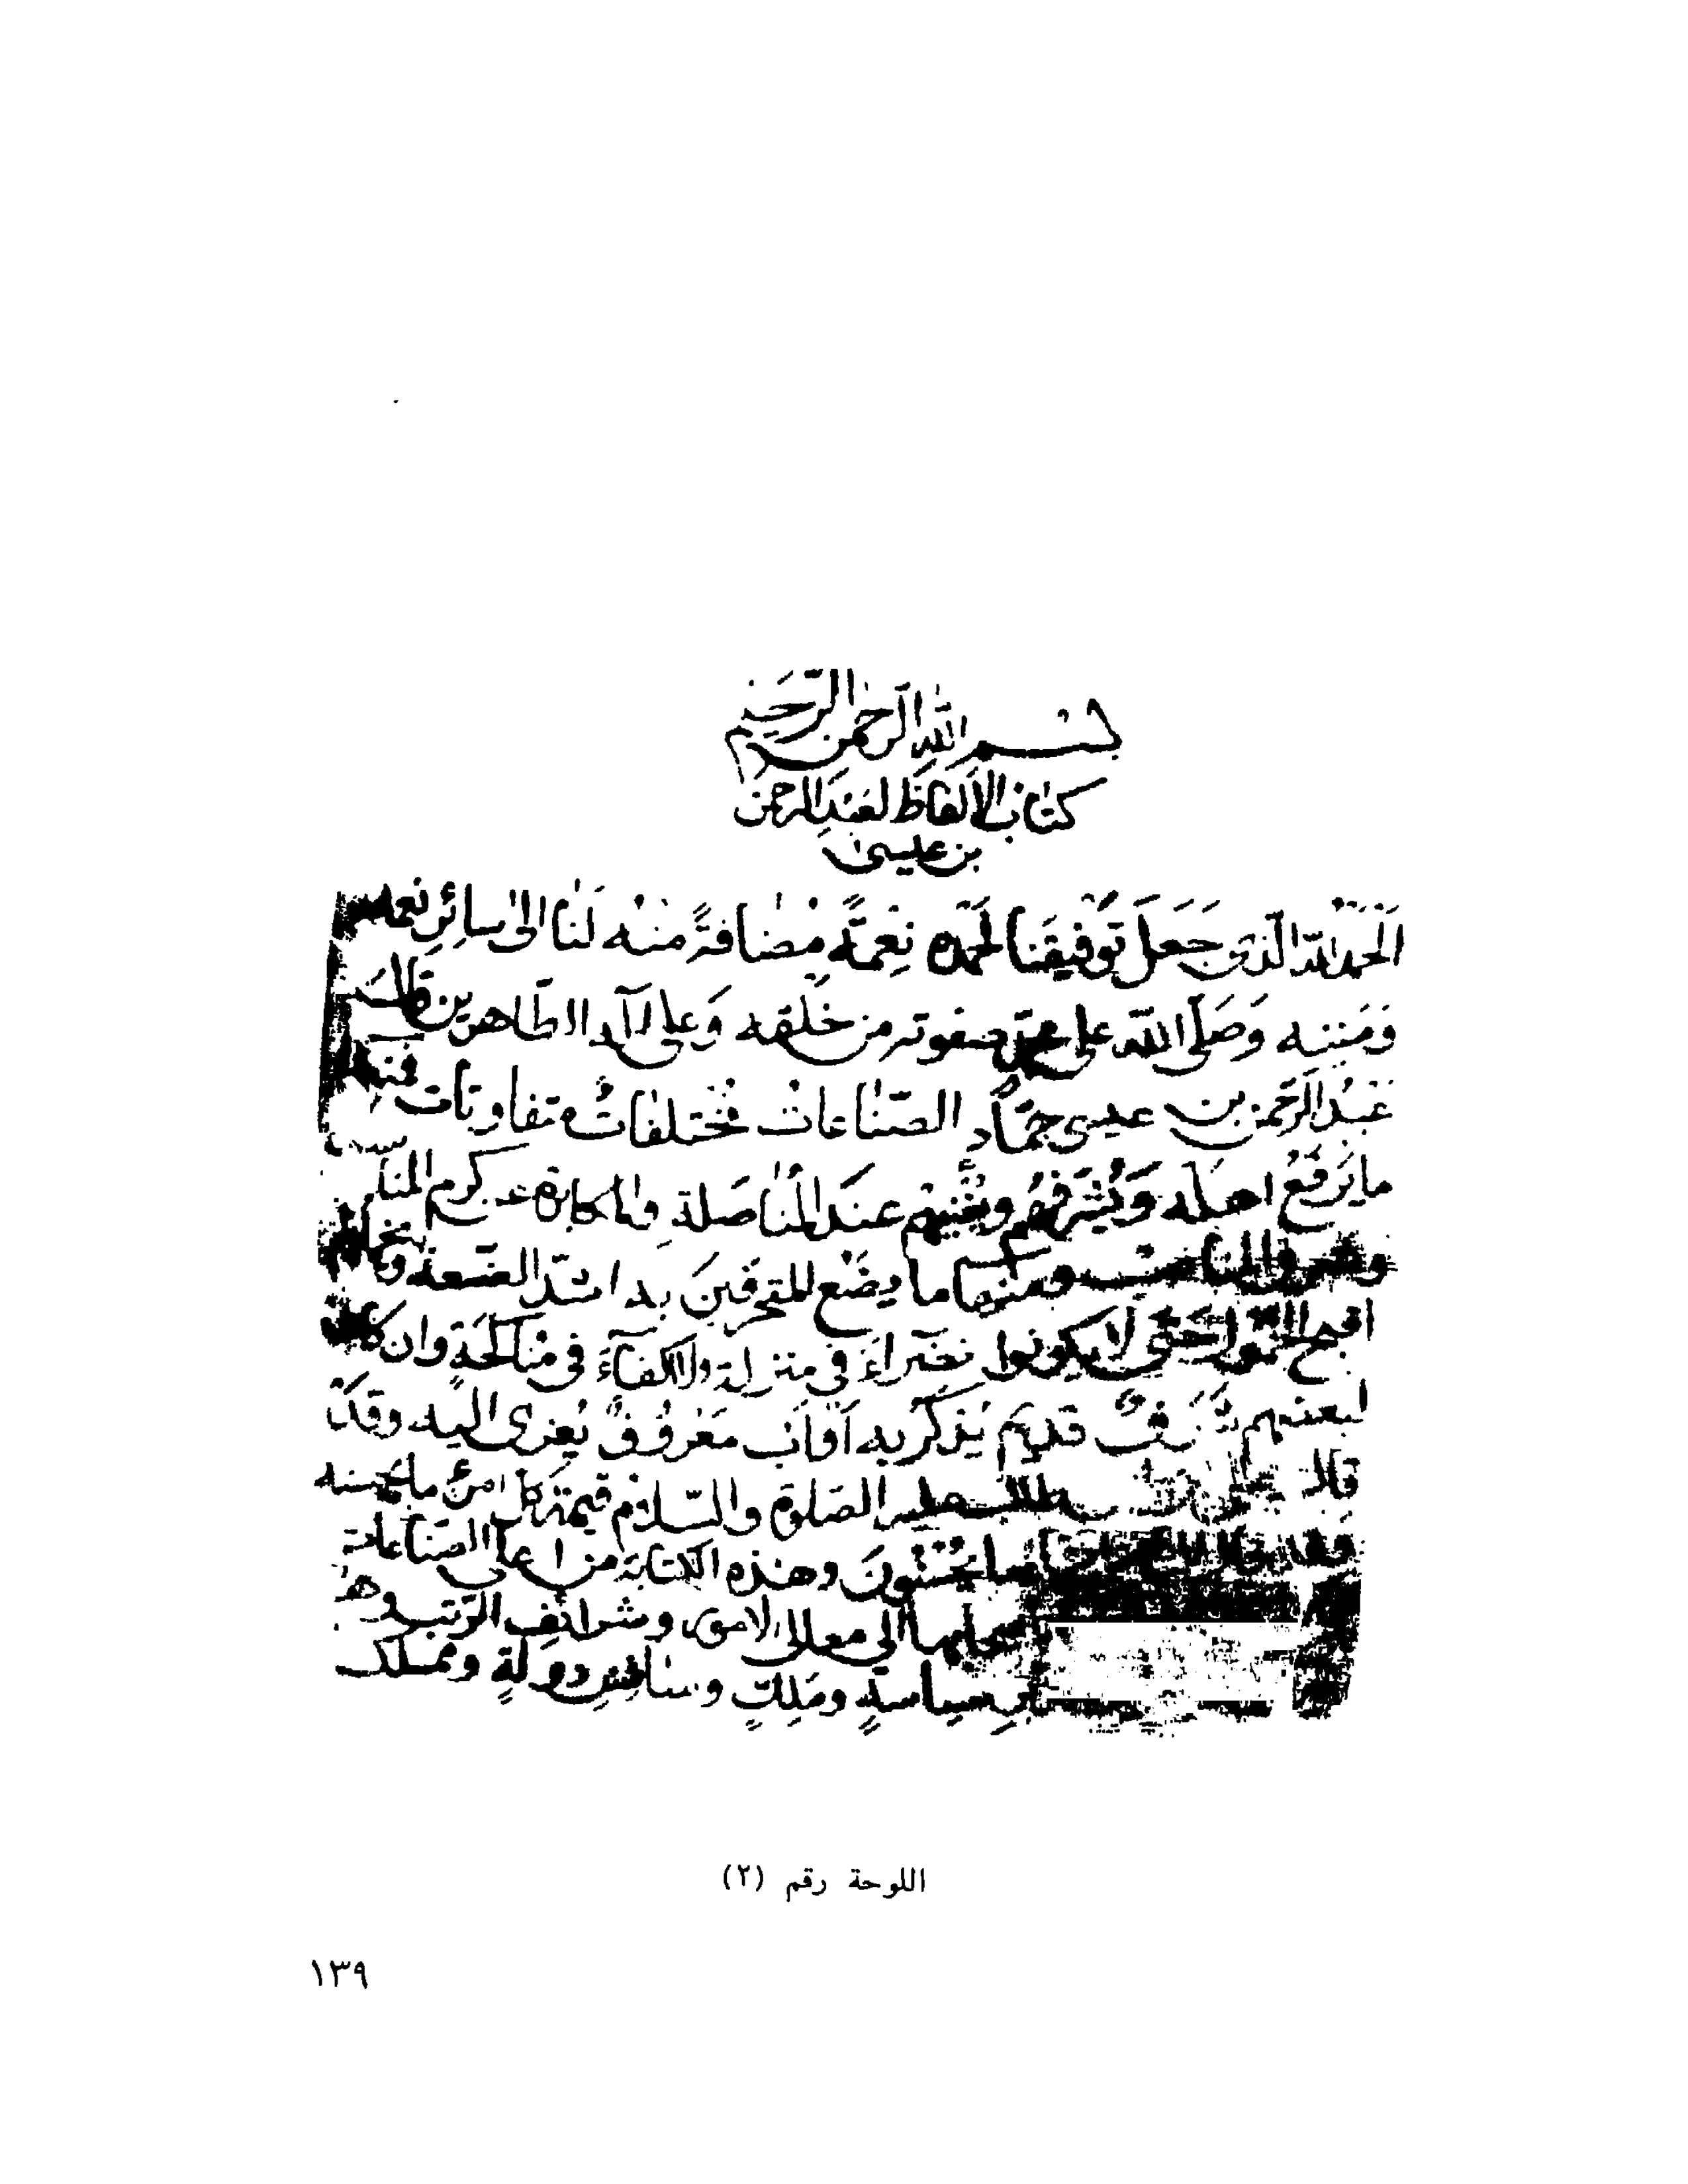 بسم الله الرحمن الرحيم
كتاب الالفاظ لعبد الرحمن
بن عيسى
اَلحمد لله الّذى جَعَلَ تَوفيقَنا لحمده نِعمَةً مضافةً منه لَنا الىٰ سائِرِ نعمه
وَمننه وَصَلّى اللّه على محمّد صفوته من خلقه وَعلى اٰله الطّاهرين قال
عَبدُ الرحمن بن عيسى حمّاد الصّناعاتُ مختلفاتٌ متفاوتات فمنها
ما يَرفَعُ اهله وَيُشَرفُهم ويغنيهم عندَ المُناضَلة والمكاثرة عن كرم المناسب
ومنها ما يضَع للمتحرفينَ به اشدّ الضعة
اقبح حتى لا يكونوا نظراءَ فى منزلة ولا اكفاءَ فى مناكحَةٍ وان كان
لبعضهم شَرَفٌ قديم يُذكر به اَو اَبٌ مَعروفٌ يُعزى اليه وقَد
قال الصّلوة والسّلام قيمة كلّ امرئ ما يحسنه
ما يحسنونَ وهذه الكتابة من اعلى الصناعات
الى معالى الامور وشرائف الرّتب وهم
سياسةٍ ومَلِكٍ و دولةٍ ومملكة
اللوحة رقم (٢)
١٣٩